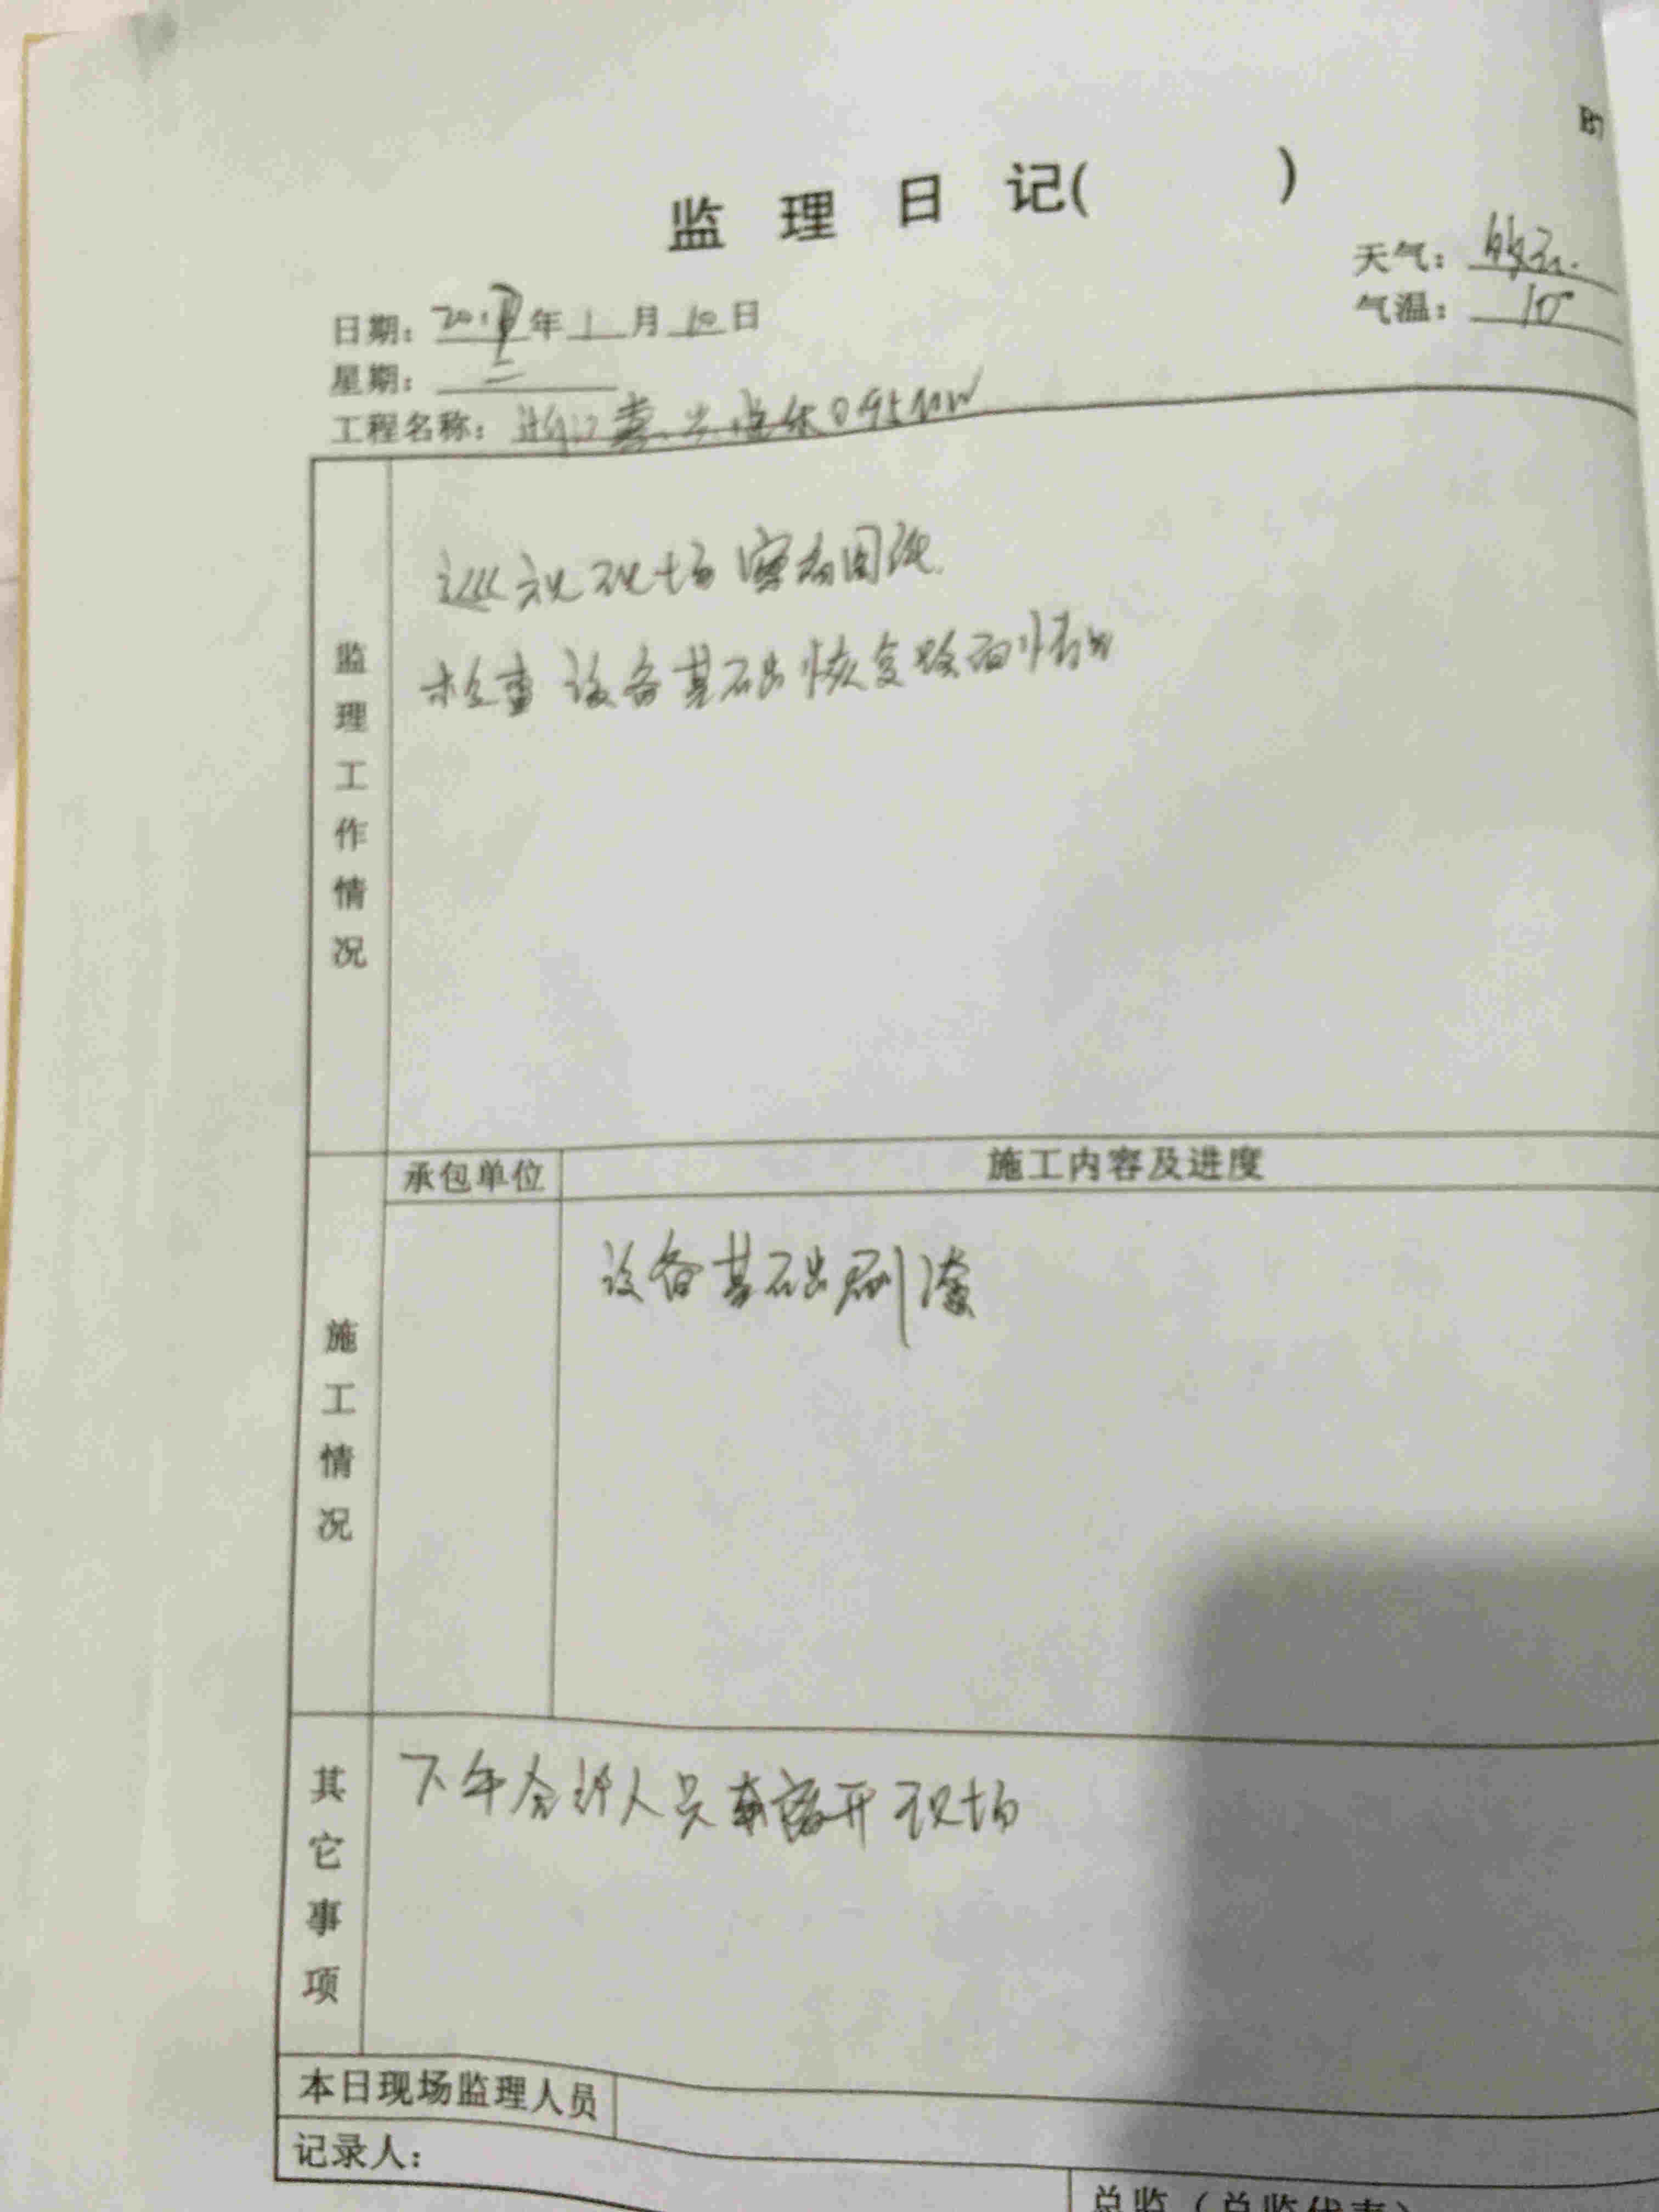 监理日记( )
天气:
日期: 2017年1月10日
气温: 10°
星期: 二
工程名称: 浙江嘉兴 0.95MW
监理工作情况
巡视现场 察看图纸
检查设备基础恢复路面情况
承包单位 施工内容及进度
施工情况
设备基础刷漆
其它事项
下午 人员 离开现场
本日现场监理人员
记录人:
总监(总监代表)